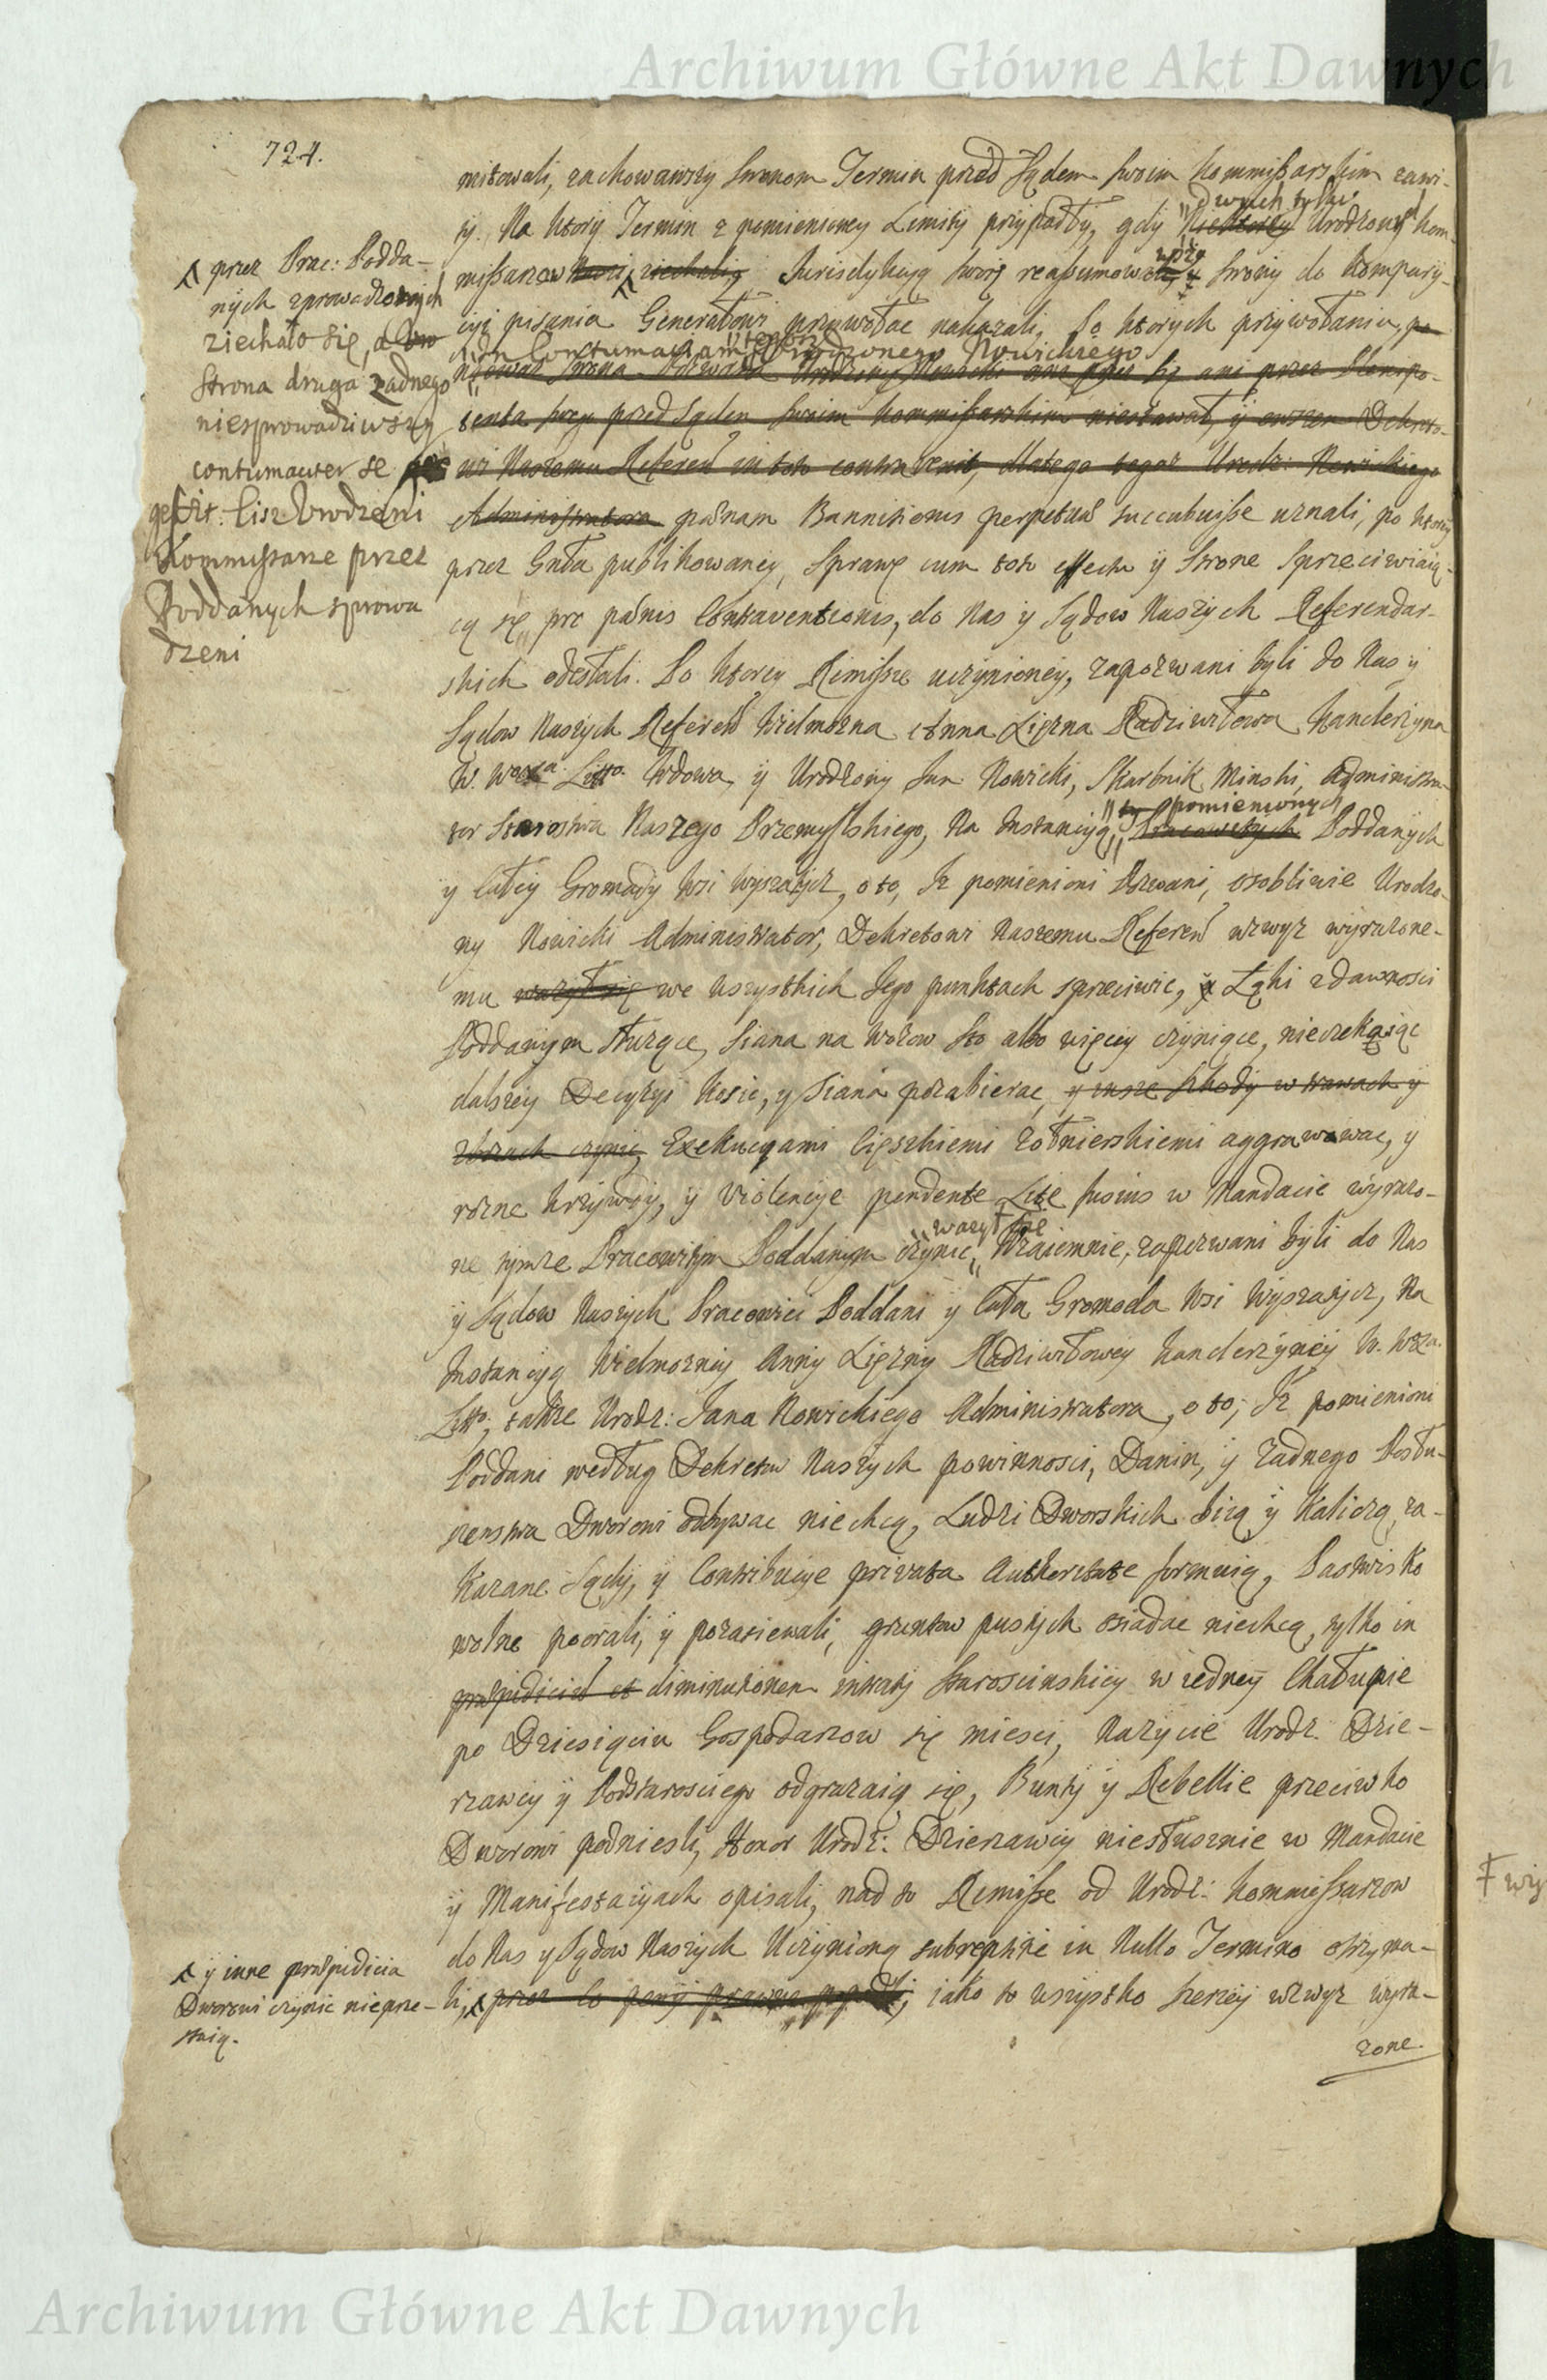 Archiwum Główne Akt Dawnych
724.
mitowali, zachowawszy Stronom Termin przed Sądem Swoim Kommissarskim zawi-
ty. Na ktory Termin z pomienioney Limity przypadły, gdy niektorzy dwuch tylko Urodzonych Kom-
missarzow ziechali Jurisdykcyą swoię reassumowali, y Strony do Kompary-
cyi pisania Generałowi przywołac nakazali, Po ktorych przywołaniu, po
in Contumaciam Urodzonego Nowickiego
Strona Pozwana Urodzony Nowicki ani przez się ani przez Plenipo-
tenta swego przed Sądem Swoim Kommissarskim niestawał, y owszem Dekreto-
wi Naszemu Referen in toto contravenit, dlatego tegoz Urodz: Nowickiego
Administratora pænam Bannitionis perpetuæ succubuisse uznali, po ktorey
przez Gnła publikowaney, Sprawę cum toto effectu y Strone Sprzeciwiaią-
cą się pro pænis Contraventionis, do Nas y Sądow Naszych Referendar-
skich odesłali. Po ktorey Remissie uczynioney, zapozwani byli do Nas y
Sądow Naszych Referen Wielmozna Anna Xięzna Radziwiłowa Kanclerzyna
W. Litto. Wdowa, y Urodzony Jan Nowicki, Skarbnik Minski, Administra-
tor Starostwa Naszego Przemyslskiego, Na Instancyą pomienionych Pracowitych Poddanych
y całey Gromady Wsi Wyszatycz, o to, Iz pomienioni Pozwani, osobliwie Urodzo-
ny Nowicki Administrator, Dekretowi Naszemu Referen wzwyz wyrazone-
mu wazył się we wszystkich Jego punktach sprzeciwic, y Łąki zdawnosci
Poddanym słuzące, Siana na wozow sto albo więcey czyniące, nieczekaiąc
dalszey Decyzyi Kosic, y Siana pozabierac, y insze szkody w trawach y
zbozach czynic, Exekucyami Cięszkiemi zołnierskiemi aggravowac, y
rozne krzywdy, y Violencye pendente Lite susius w Mandacie wyrazo-
ne tymze Pracowitym Poddanym czynic, wazył się Wzaiemnie, zapozwani byli do Nas
y Sądow Naszych Pracowici Poddani y Cała Gromada Wsi Wyszatycz, Na
Instancyą Wielmozney Anny Xięzny Radziwiłowey Kanclerzyney W.
Litto, takze Urodz: Jana Nowickiego Administratora, o to, Iz pomienioni
Poddani według Dekretow Naszych powinnosci, Danin, y Zadnego Posłu-
szenstwa Dworowi odbywac niechcą, Ludzi Dworskich biią y Kaliczą, za-
kazane Sądy, y Contribucye privata Authoritate formuią, Pastwisko
wolne poorali, y pozasiewali, gruntow pustych osiadac niechcą, tylko in
præjudicium et diminutionem intraty Starosciuskiey w iedney Chałupie
po Dziesięciu Gospodarzow się miesci, Nazycie Urodz. Dzie-
rzawcy y Podstarosciego odgrazaią się, Bunty y Rebellie przeciwko
Dworowi podniesli, Honor Urodz: Dzierzawcy niesłusznie w Mandacie
y Manifestacyach opisali, nad to Remisse od Urodz: Kommissarzow
do Nas y Sądow Naszych Uczynioną subreptitie in Nullo Termino otrzyma-
li, iako to wszystko szerzey wzwyz wyra-
zone.
przez Prac: Podda-
nych zprowadzonych
ziechało się, a
Strona druga zadnego
niesprowadziwszy
contumaciter se
gessit: Ciz Urodzeni
Kommissarze przez
Poddanych sprowa
dzeni
y inne præjudicia
Dworowi czynic nieprze-
staią.
Archiwum Główne Akt Dawnych